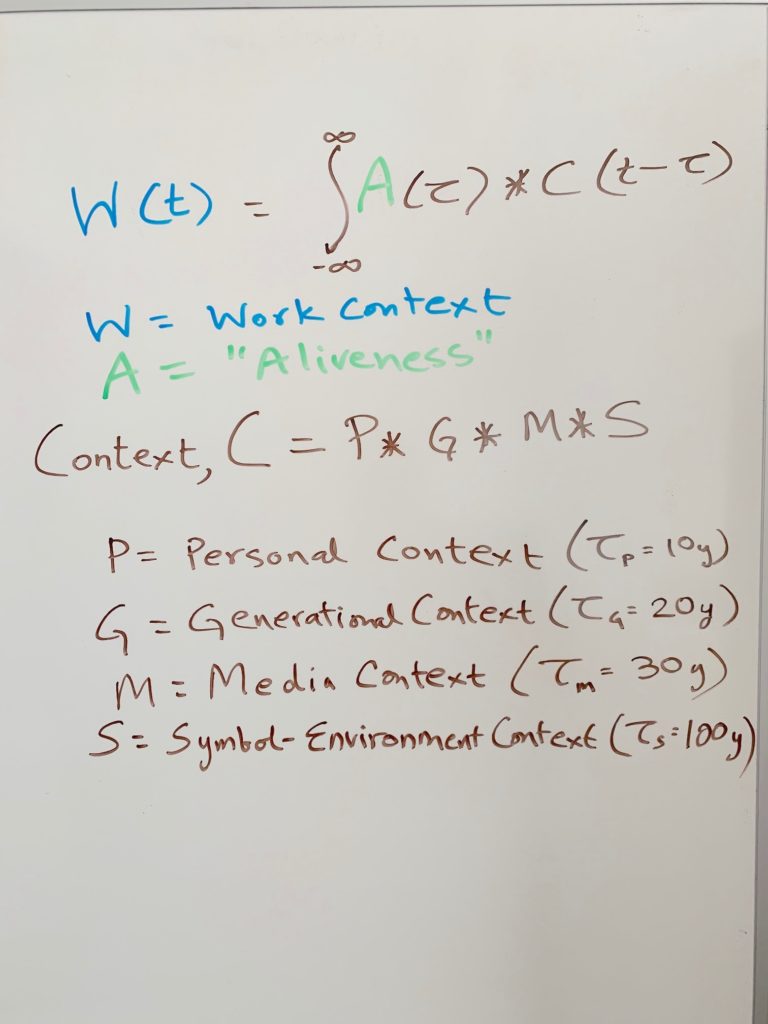 W(t) = ∫_{-∞}^{∞} A(τ) * C(t-τ)
W = Work Context
A = "Aliveness"
Context, C = P* G * M*S
P= Personal Context (τ_p=10y)
G = Generational Context (τ_G=20y)
M = Media Context (τ_m= 30y)
S= Symbol-Environment Context (τ_s=100y)